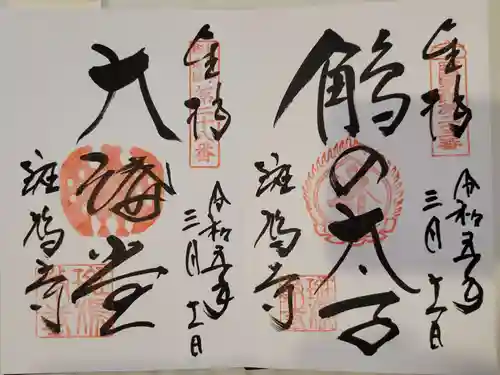 奉拝
令和五年
三月十一日
鵤の太子
斑鳩寺
奉拝
令和五年
三月十一日
大講堂
斑鳩寺